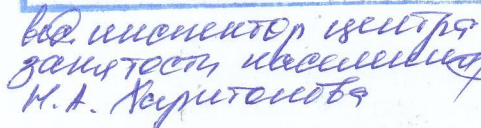 вед. инспектор центра
занятости населения
Н.А. Харитонова